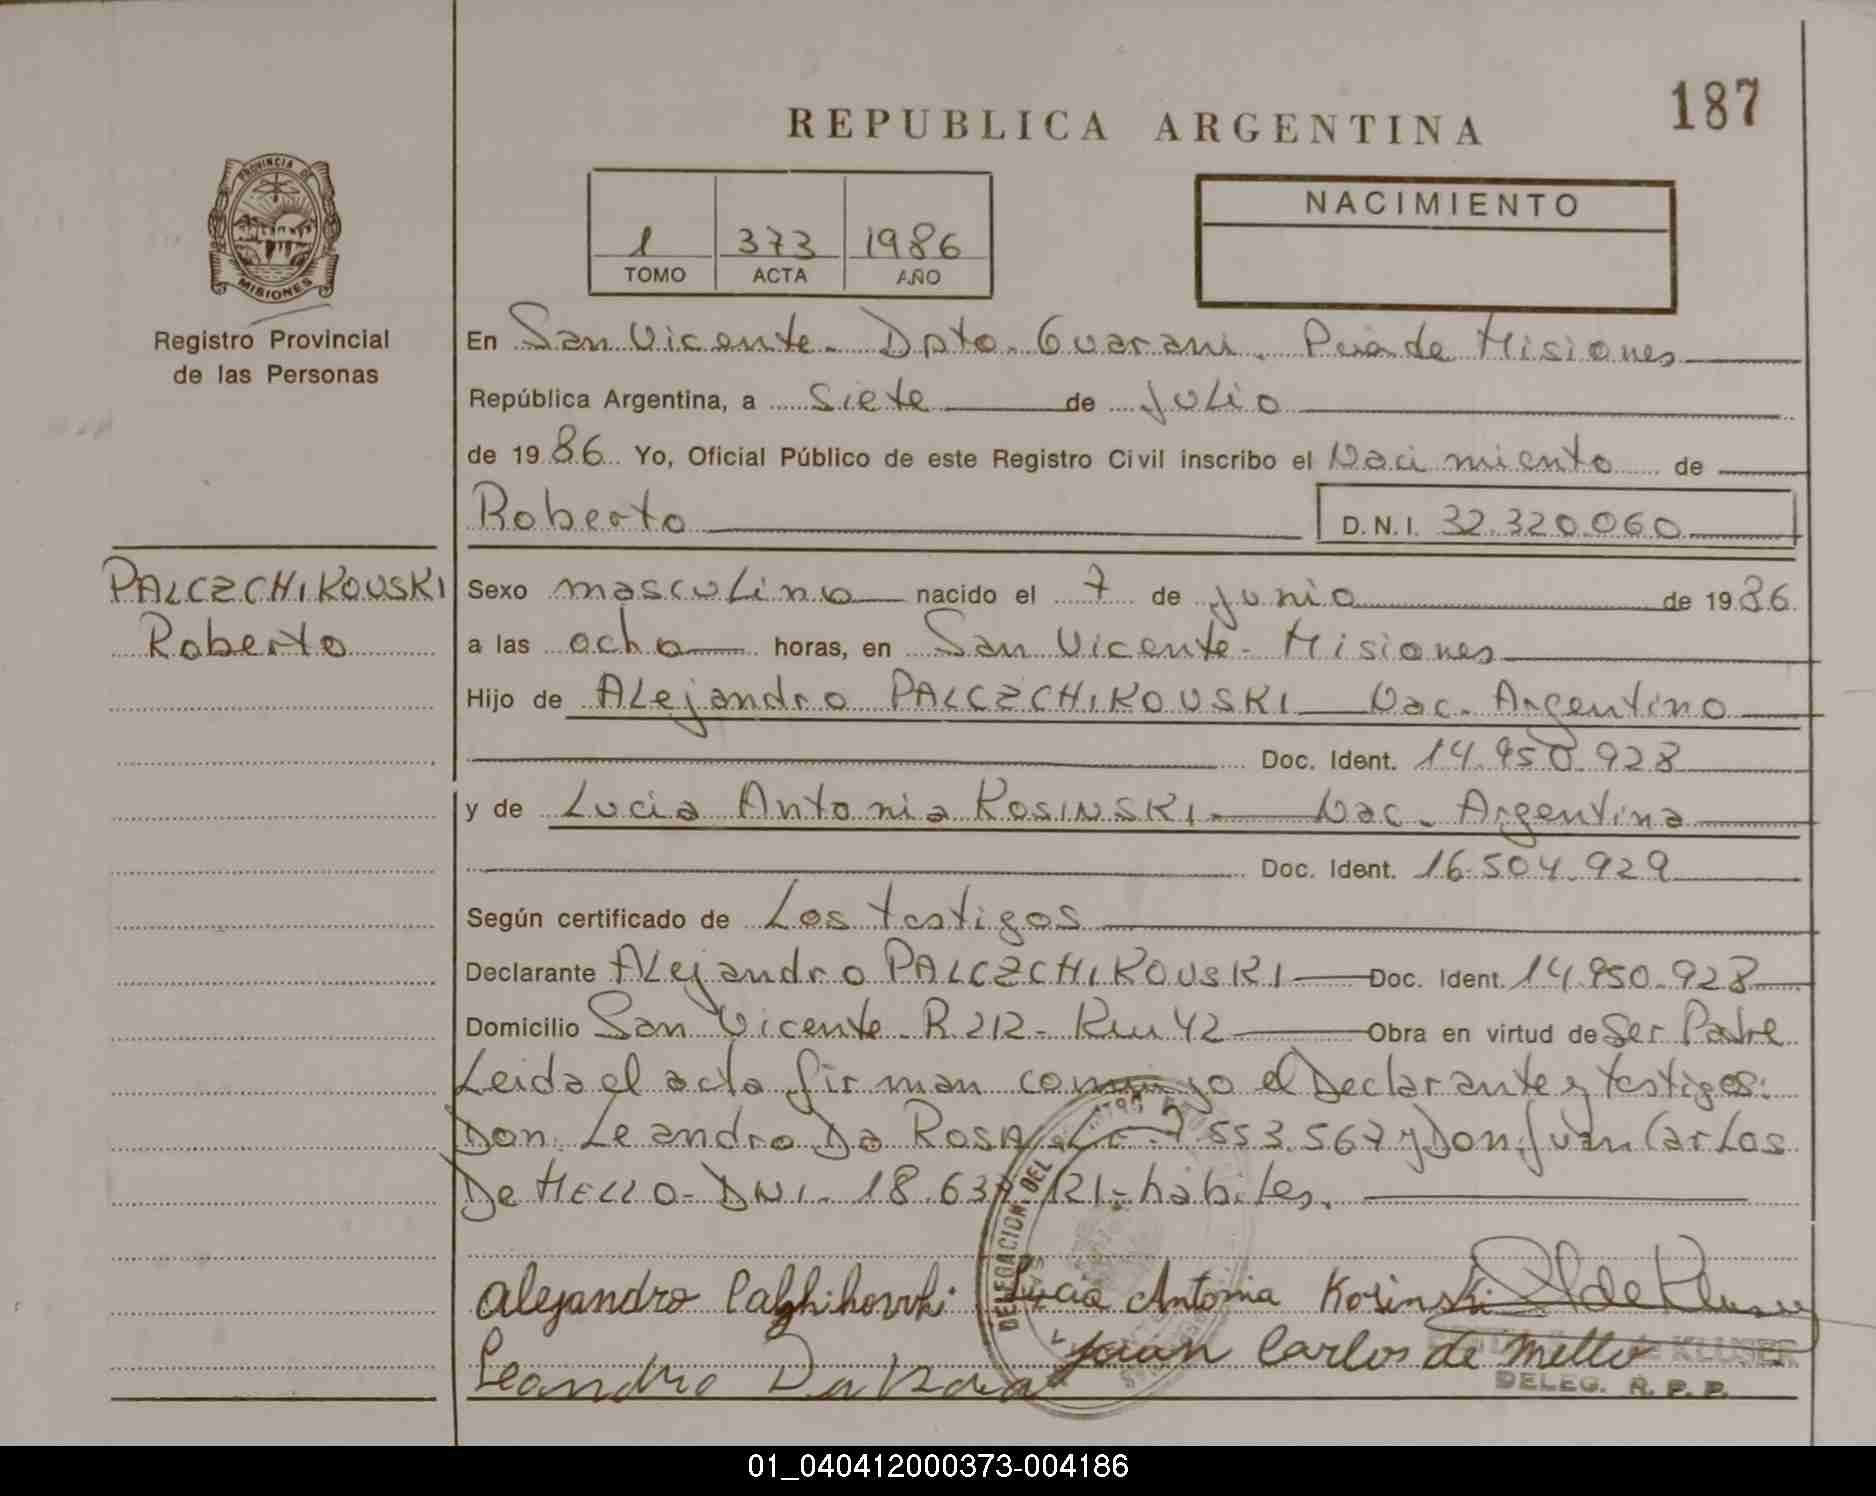 187
REPUBLICA ARGENTINA
PROVINCIA DE
MISIONES
Registro Provincial
de las Personas
1 373 1986
TOMO ACTA AÑO
NACIMIENTO
En San Vicente. Dpto. Guarani. Pcia de Misiones
República Argentina, a siete de Julio
de 1986 Yo, Oficial Público de este Registro Civil inscribo el Nacimiento de
Roberto D.N.I. 32.320.060
PALCZCHIKOVSKI
Roberto
Sexo masculino nacido el 7 de junio de 1986
a las ocho horas, en San Vicente - Misiones
Hijo de Alejandro PALCZCHIKOVSKI Nac. Argentino
Doc. Ident. 14.950.928
y de Lucia Antonia KOSINSKI.- Nac. Argentina
Doc. Ident. 16.504.929
Según certificado de Los testigos
Declarante ALejandro PALCZCHIKOVSKI Doc. Ident. 14.950.928
Domicilio San Vicente R.212- Km 42 Obra en virtud de Ser Padre
Leida el acta firman conmigo el Declarante y testigos:
Don Leandro Da ROSA 7.553.567 y Don Juan Carlos
De MELLO- DNI. 18.639.121- hábiles.
DELEGACION DEL
Alejandro Lucia Antonia Kosinski
Leandro Da Rosa Juan Carlos de Mello
de KLUSER
DELEG. R. P. P.
01_040412000373-004186